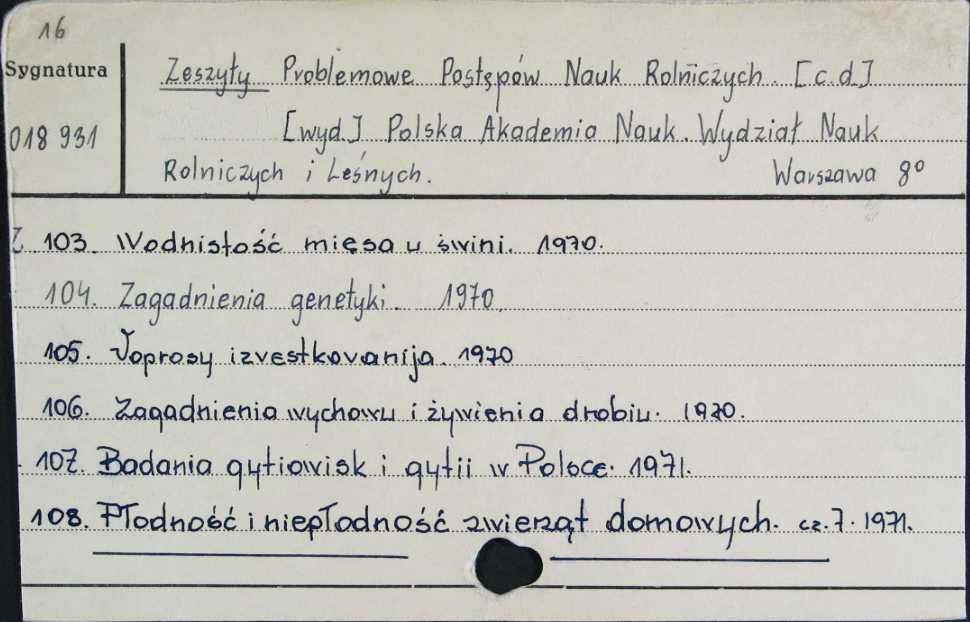 16
Sygnatura
018 931
Zeszyty Problemowe Postępów Nauk Rolniczych. [c.d.]
[wyd.] Polska Akademia Nauk. Wydział Nauk
Rolniczych i Leśnych. Warszawa 8°
Z. 103. Wodnistość mięsa u świni. 1970.
104. Zagadnienia genetyki. 1970.
105. Voprosy izvestkovanija. 1970
106. Zagadnienia wychowu i żywienia drobiu. 1970.
107. Badania gytiowisk i gytii w Polsce. 1971.
108. Płodność i niepłodność zwierząt domowych. cz. 7. 1971.